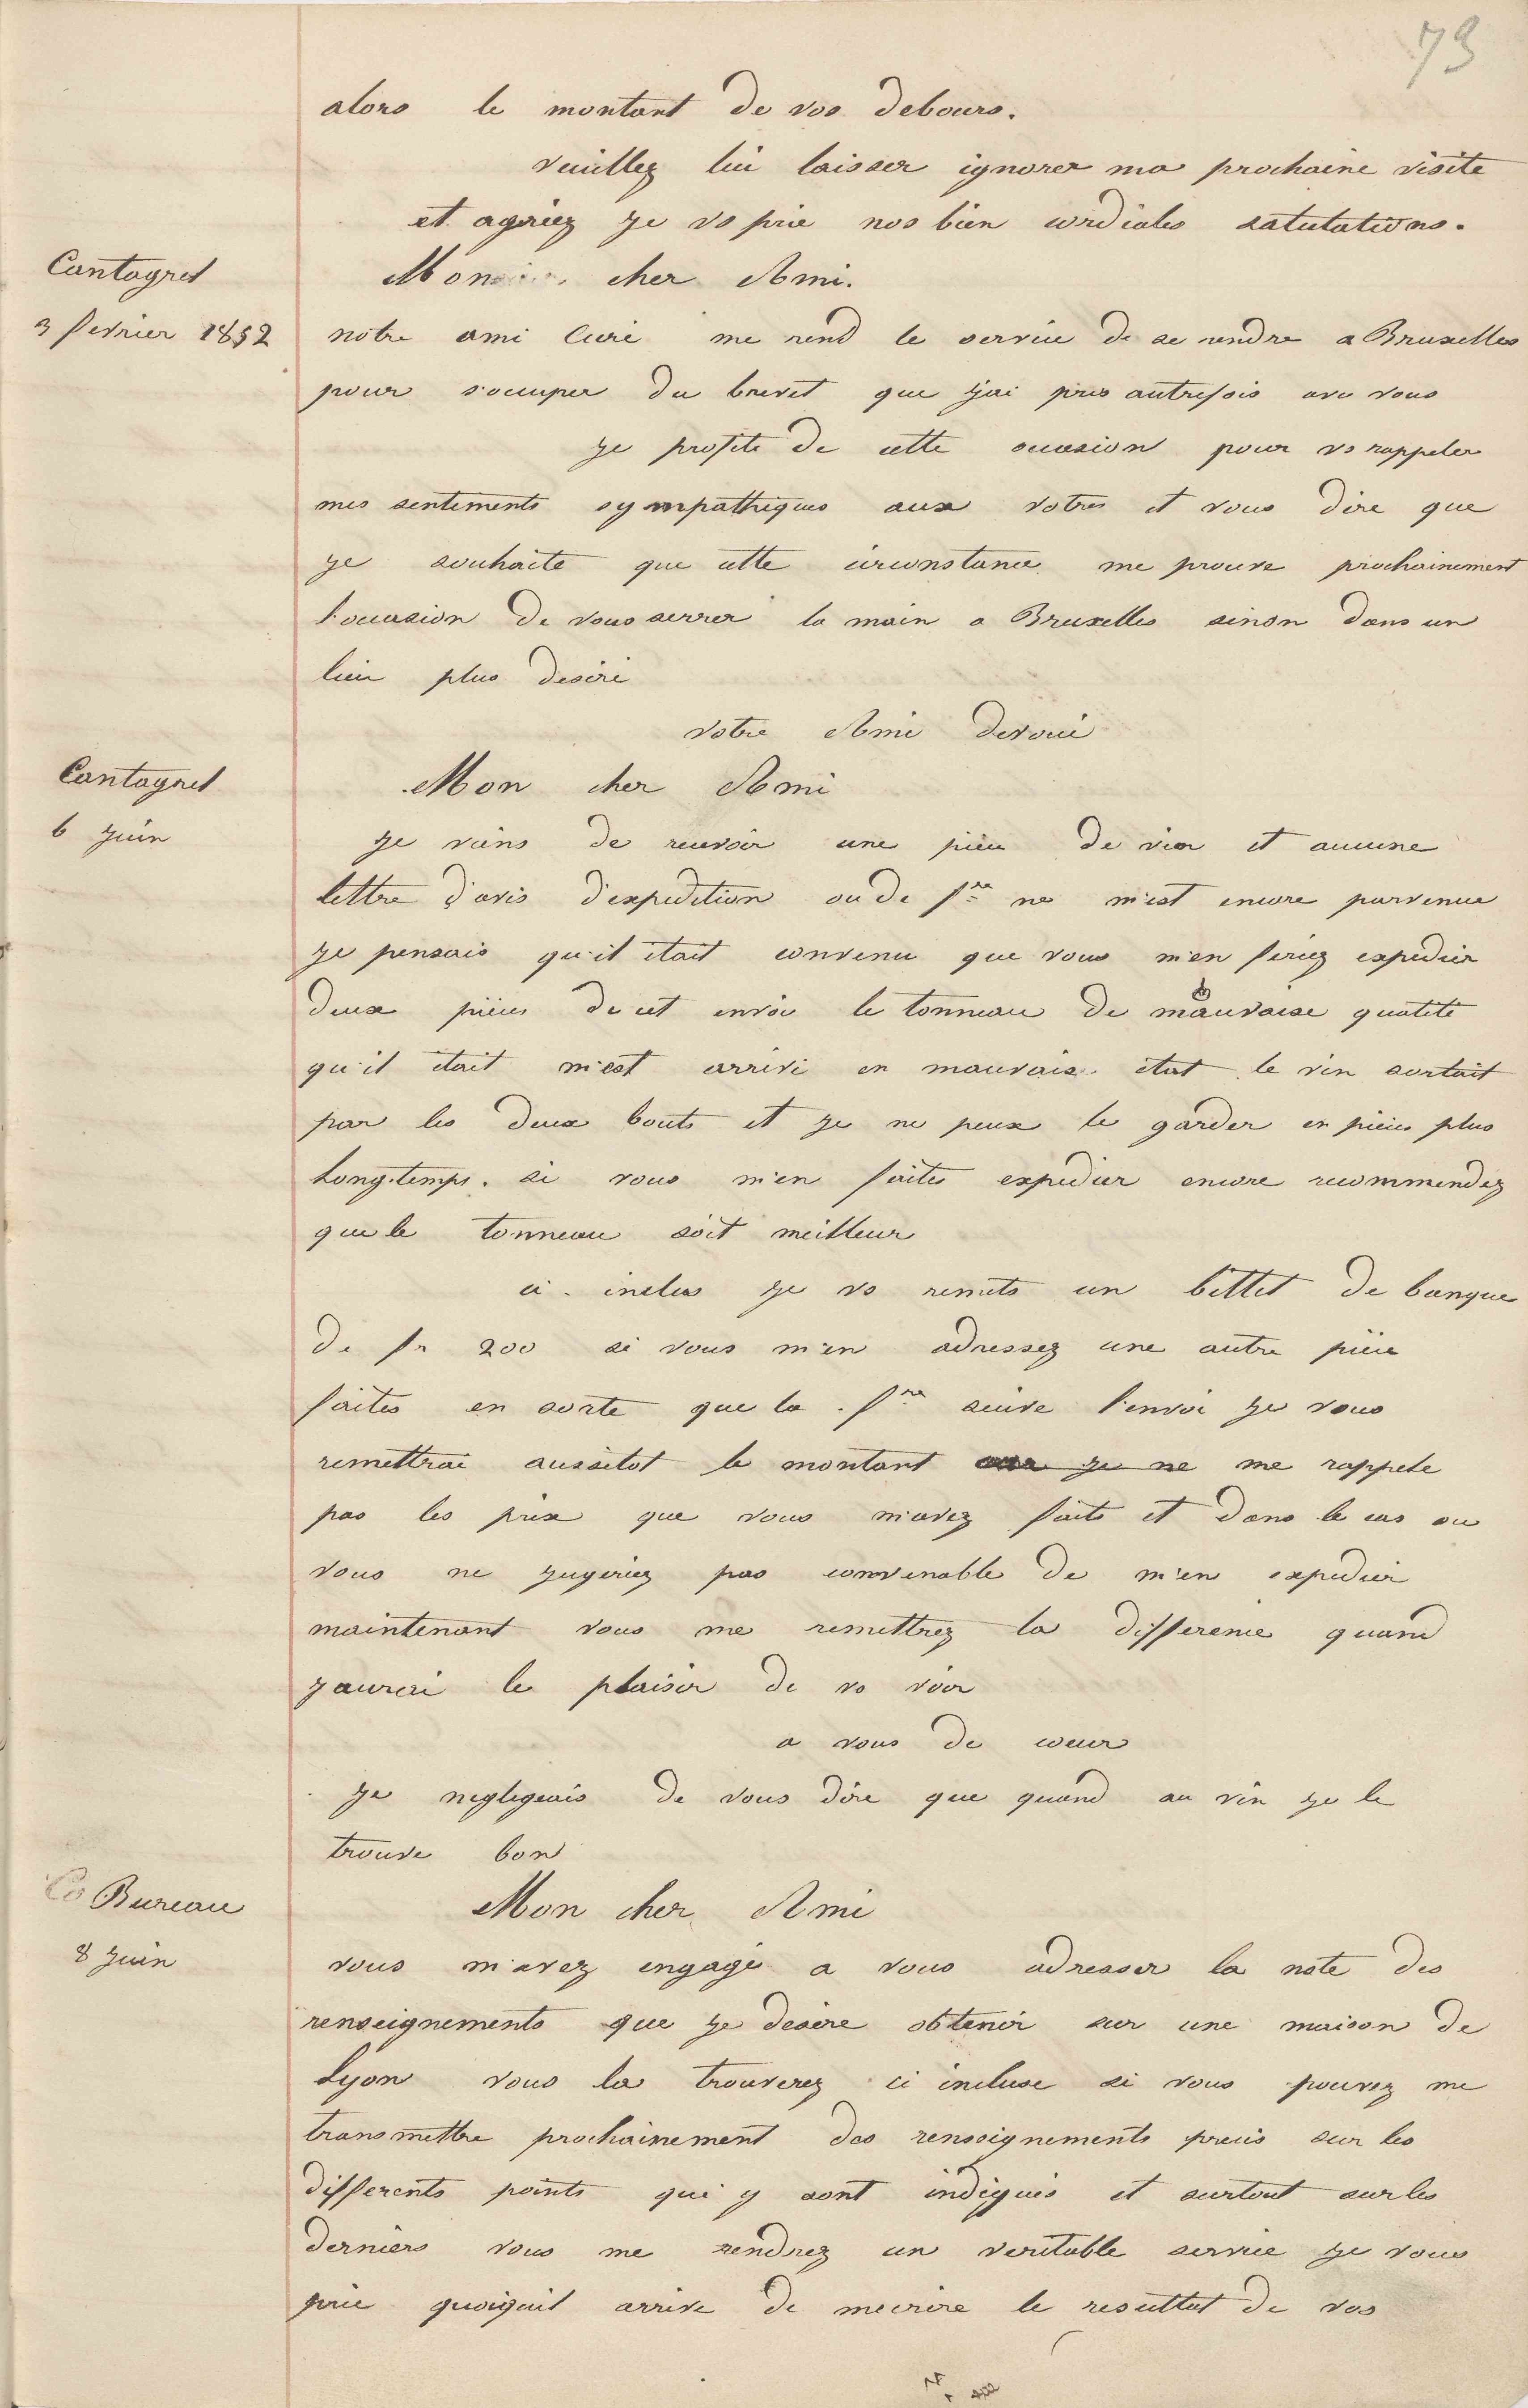 73
alors le montant de vos debours.
veuillez lui laisser ignorer ma prochaine visite
et agréez je vs prie nos bien cordiales salutations.
Cantagrel
3 fevrier 1852
Mon cher Ami.
notre ami Curé me rend le service de se rendre a Bruxelles
pour s'occuper du brevet que j'ai pris autrefois avec vous
je profite de cette occasion pour vs rappeler
mes sentiments sympathiques aux votres et vous dire que
je souhaite que cette circonstance me prouve prochainement
l'occasion de vous serrer la main a Bruxelles sinon dans un
lieu plus desiré
votre Ami devoué
Cantagrel
6 Juin
Mon cher Ami
je viens de recevoir une pièce de vin et aucune
lettre d'avis d'expedition ou de fre ne m'est encore parvenue
je pensais qu'il était convenu que vous m'en feriez expedier
deux pièces de cet envoi le tonneau de mauvaise qualite
qu'il était m'est arrivé en mauvais état le vin sortait
par les deux bouts et je ne peux le garder en pièces plus
Longtemps. si vous m'en faites expedier encore recommendez
que le tonneau soit meilleur
ci-inclus je vs remets un billet de banque
de fr 200 si vous m'en adressez une autre pièce
faites en sorte que la fre suive l'envoi je vous
remettrai aussitot le montant je ne me rappele
pas les prix que vous m'avez faits et dans le cas ou
vous ne jugeriez pas convenable de m'en expedier
maintenant vous me remettrez la difference quand
jaurai le plaisir de vs voir
a vous de coeur
je negligeais de vous dire que quand au vin je le
trouve bon
Co Bureau
8 Juin
Mon cher Ami
vous m'avez engagé a vous adresser la note des
renseignements que je desire obtenir sur une maison de
Lyon vous la trouverez ci incluse si vous pouvez me
transmettre prochainement des renseignements precis sur les
differents points qui y sont indiqués et surtout sur les
derniers vous me rendrez un veritable service je vous
prie quoiquil arrive de mecrire le resultat de vos